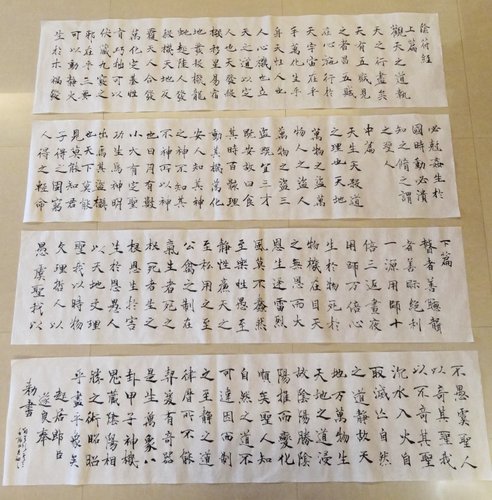 陰符經
上篇
觀天之道執
天之行盡矣
天有五賊見
之者昌五賊
在心施行於
天宇宙在乎
手萬化生乎
身天性人也
人心機也立
天之道以定
人也天發殺
機移星易宿
地發殺機龍
蛇起陸人發
殺機天地反
覆天人合發
萬化定基性
有巧拙可以
伏藏九竅之
邪在乎三要
可以動靜火
生於木禍發
必尅姦生於
國時動必潰
知之脩之謂
之聖人
中篇
天生天殺道
之理也天地
萬物之盜萬
物人之盜人
萬物之盜三
盜既宜三才
既安故曰食
其時百骸理
動其機萬化
安人知其神
之神不知其
不神而以神
也日月有數
小大有定聖
功生焉神明
出焉其盜機
也天下莫能
見莫能知君
子得之固窮
人得之輕命
下篇
瞽者善聽聾
者善視絕利
一源用師十
倍三返晝夜
用師万倍心
生於物死於
物機在目天
之無恩而大
恩生迅雷烈
風莫不蠢然
至樂性愚至
靜性廉天之
至私用之至
公禽之制在
氣生者死之
根死者生之
根恩生於害
生於恩愚人
以天地文理
聖我以時物
文理哲人以
愚虞聖我以
不愚虞聖人
以奇其聖我
以不奇其聖
沉水入火自
取滅亡自然
之道靜故天
地万物生
天地之道浸
故陰陽勝陰
陽推而變化
順矣聖人知
自然之道不
可違因而制
之至靜之道
律曆所不能
契爰有奇器
是生萬象八
卦甲子神機
鬼藏陰陽相
勝之術昭昭
乎盡乎象矣
起居郎臣
遂良奉
勑書